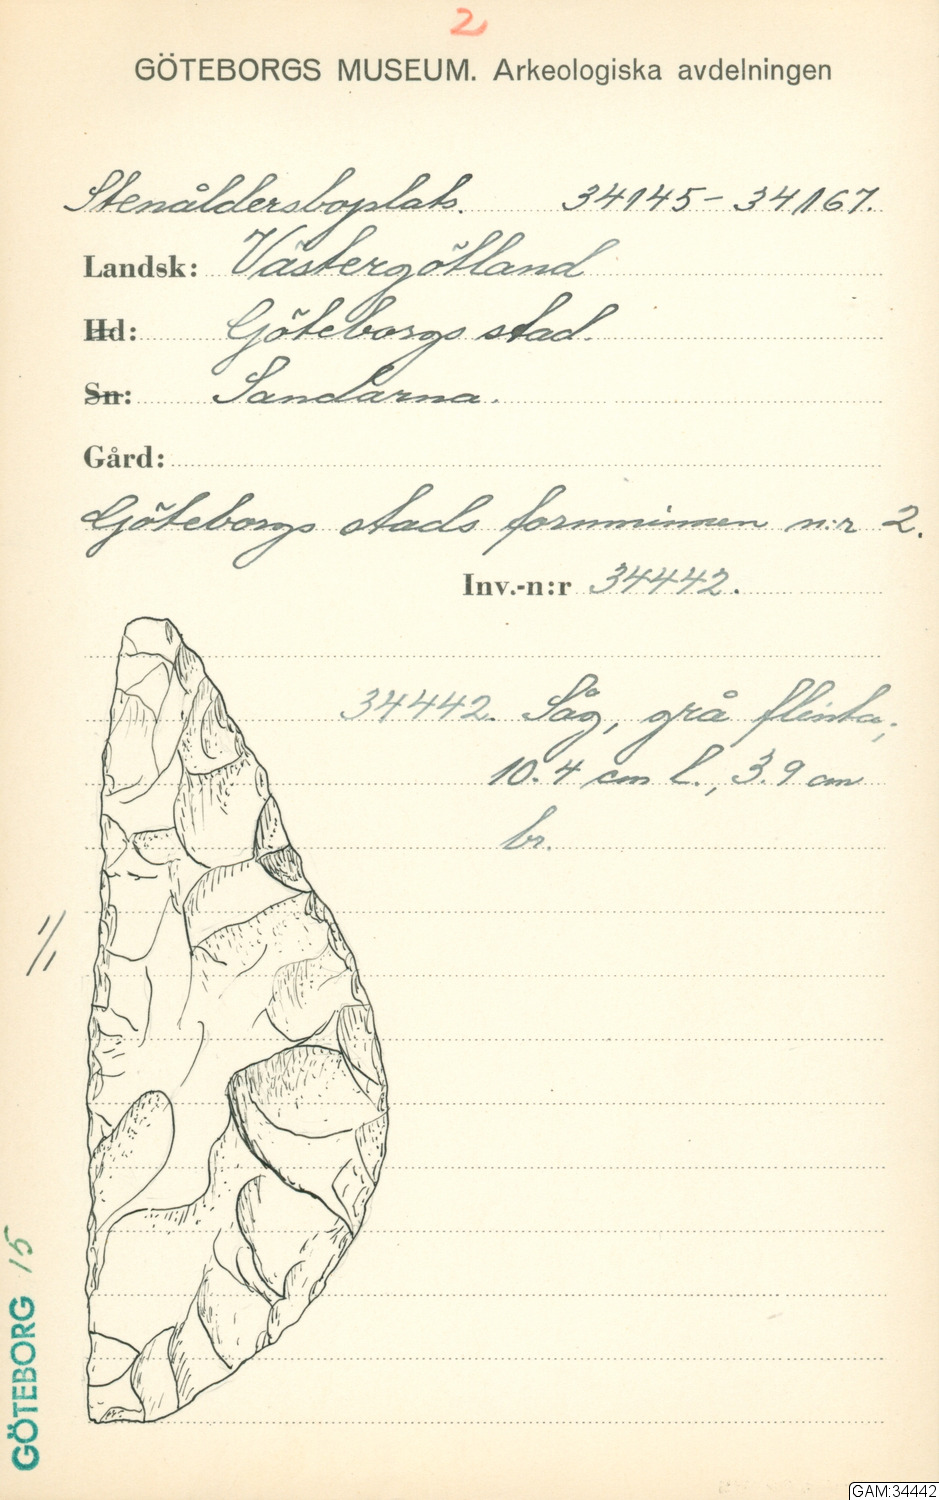 2
GÖTEBORGS MUSEUM. Arkeologiska avdelningen
Stenåldersboplats. 34145-34167.
Landsk: Västergötland
Hd: Göteborgs stad.
Sn: Sandarna.
Gård:
Göteborgs stads fornminnen n:r 2.
Inv.-n:r 34442.
34442. Såg, grå flinta,
10.4 cm l., 3.9 cm
br.
1/1
GÖTEBORG 15
GAM:34442